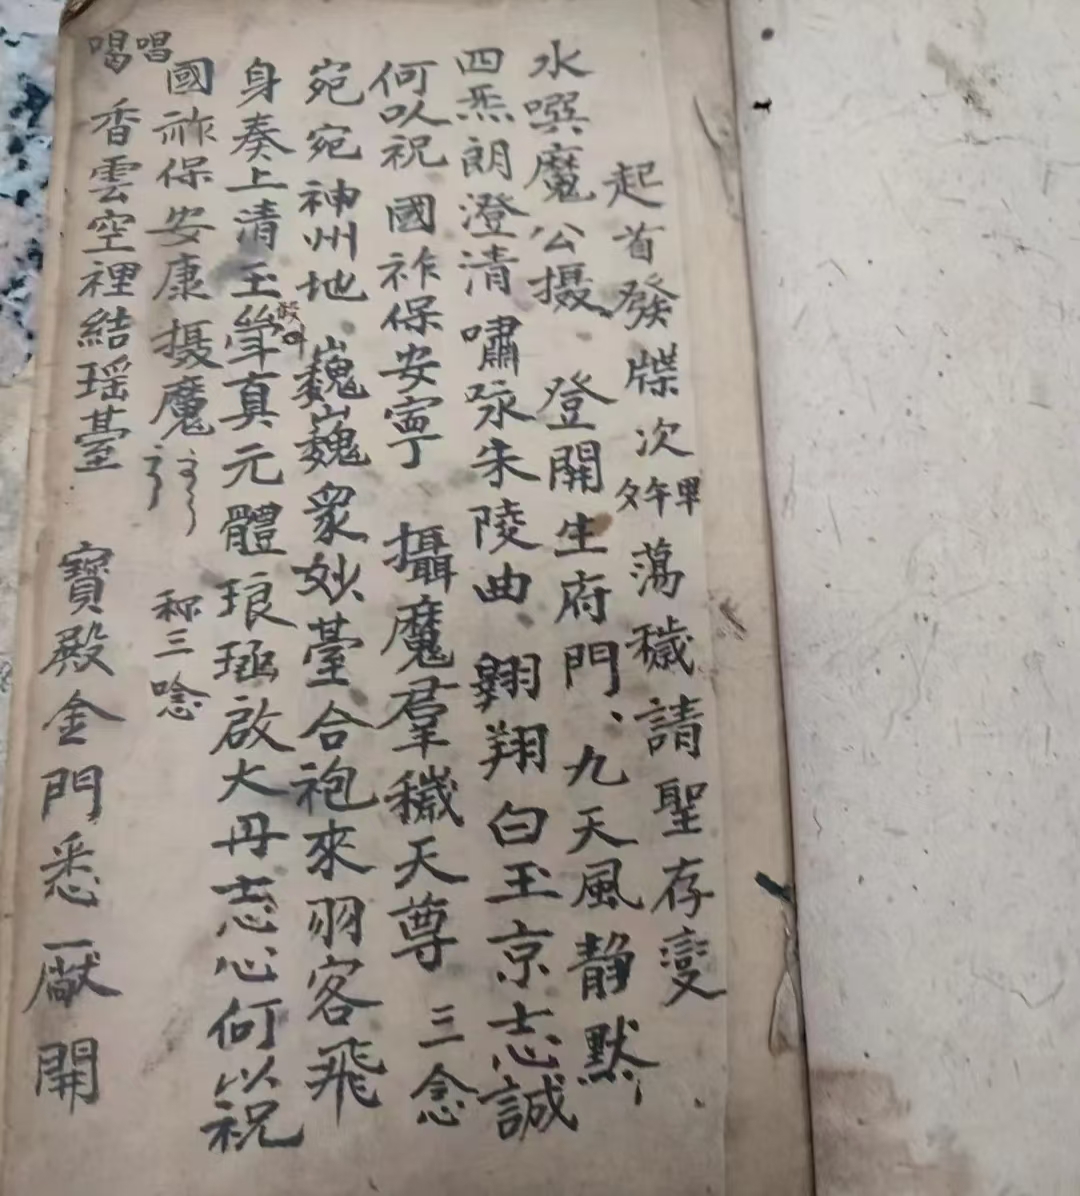 起首發牒次 午畢 蕩穢請聖存變
水噀魔公攝 登開生府門、九天風静默
四炁朗澄清 嘯咏朱陵曲 翱翔白玉京志誠
何以祝 國祚保安寧 攝魔羣穢天尊 三念
宛宛神州地 巍巍眾妙臺 合袍來羽客飛
身奏上清玉 真元體琅璚啟大丹志心何以祝
國祚保安康 摄魔 三唸
唱 香雲空裡結瑶臺 寶殿金門悉 開